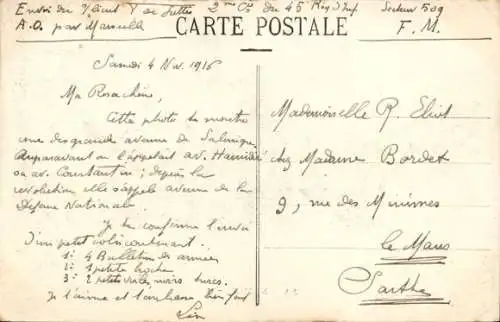 Envoi du V. de Juttes 2me Cie du 45 Rég d'Inf. Secteur 509
A.O. par Marseille
CARTE POSTALE
F. M.
Samedi 4 Nov. 1916
Ma Rosachérie,
Cette photo te montre
une des grande avenue de Salonique
Auparavant on l'appelait av. Hamidié
ou av. Constantin ; depuis la
révolution elle s'appelle avenue de la
Défense Nationale.
Je te confirme l'envoi
d'un petit colis contenant.
1º 4 Bulletin des armées
2º 1 petite broche
3º 2 petites noirs turcs.
Je t'aime et t'embrasse bien fort
Mademoiselle R. Eliot
chez Madame Bordet
9, rue des Minimes
Le Mans
Sarthe